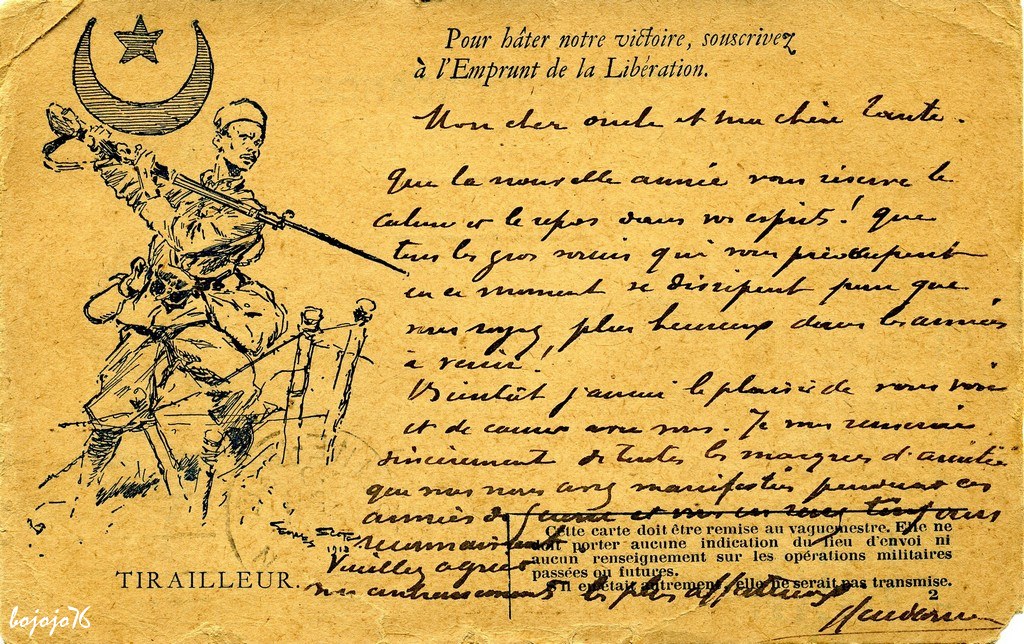 Pour hâter notre victoire, souscrivez
à l'Emprunt de la Libération.
Mon cher oncle et ma chère Tante.
Que la nouvelle année vous réserve le
calme et le repos dans vos esprits! Que
tous les gros soucis qui vous préoccupent
en ce moment se dissipent pour que
vous soyez plus heureux dans les années
à venir!
Bientôt j'aurai le plaisir de vous voir
et de causer avec vous. Je vous remercie
sincèrement de toutes les marques d'amitié
que vous nous avez manifestées pendant ces
années de guerre et vous en serez toujours
reconnaissant
Veuillez agréer
mes embrassements les plus affectueux
Cette carte doit être remise au vaguemestre. Elle ne
doit porter aucune indication du lieu d'envoi ni
aucun renseignement sur les opérations militaires
passées ou futures.
S'il en était autrement, elle ne serait pas transmise.
2
Georges Scott
1918
TIRAILLEUR.
bojojo76